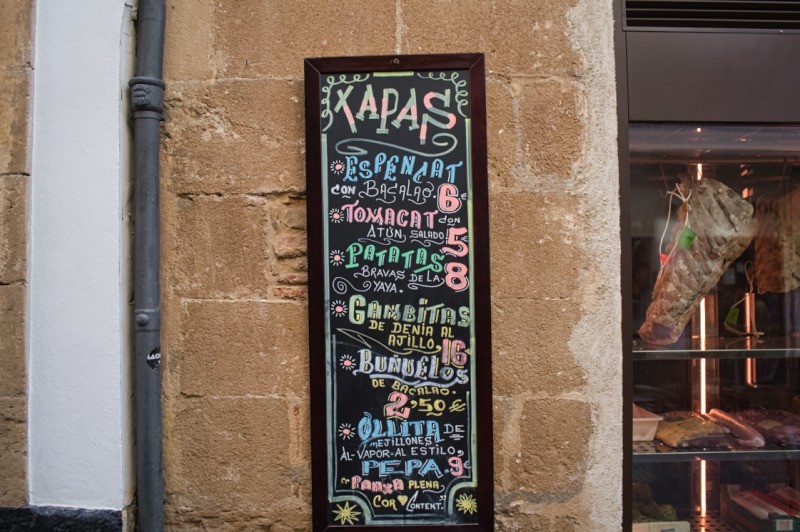 XAPAS
ESPENCAT
CON BACALAO. 6€
TOMACAT CON
ATÚN SALADO! 5€
PATATAS
BRAVAS DE LA 8
YAYA.
GAMBITAS
DE DENIA AL
AJILLO. 16
BUÑUELOS
DE BACALAO.
2,50 €
OLLITA DE
MEJILLONES
AL-VAPOR-AL ESTILO
PEPA. 9€
"PANXA PLENA
COR CONTENT."